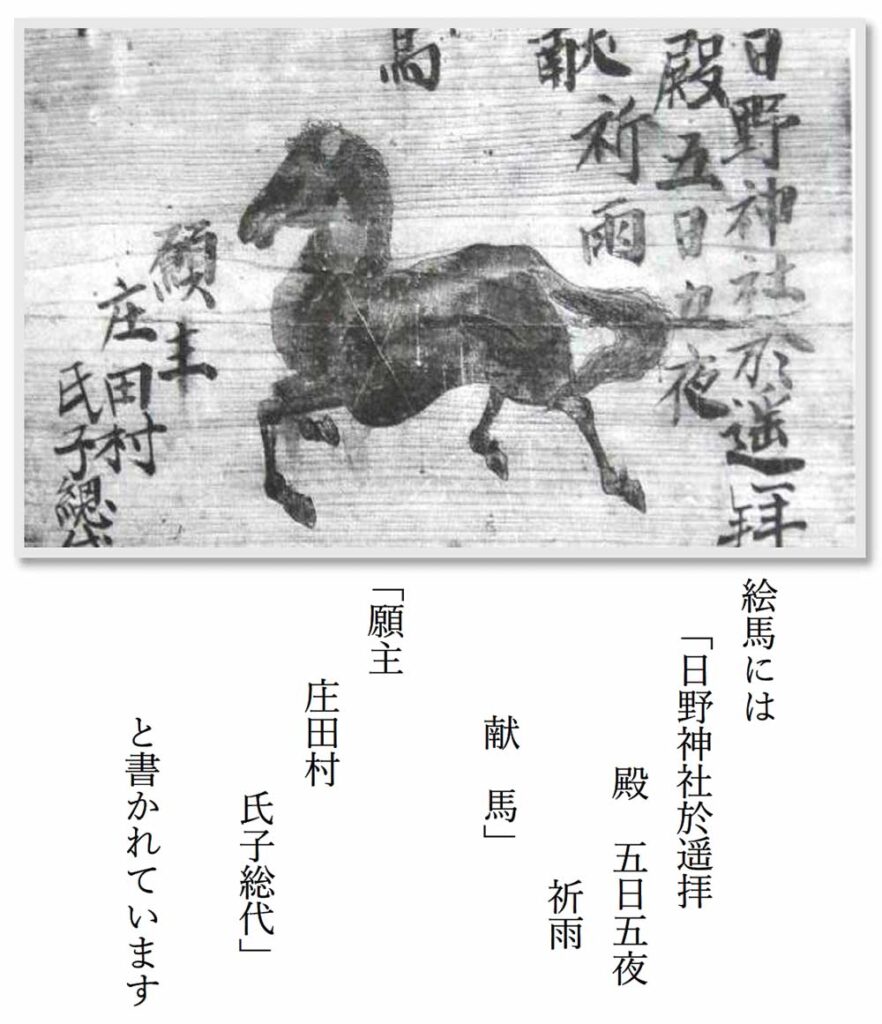 日野神社於遥拝
殿五日五夜
祈雨
献
馬
願主
庄田村
氏子總代
絵馬には
「日野神社於遥拝
殿　五日五夜
祈雨
献　馬」
「願主
庄田村
氏子総代」
と書かれています